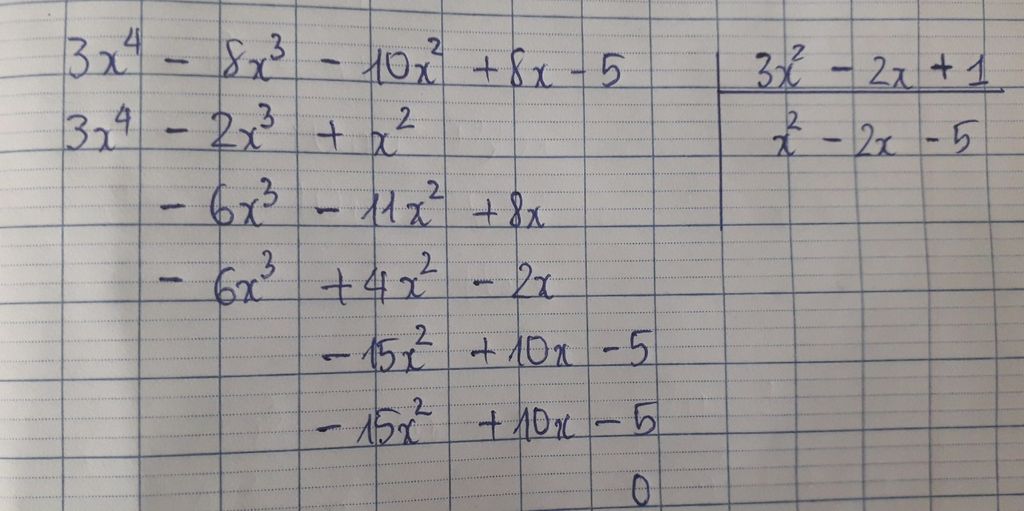 3x⁴ - 8x³ - 10x² + 8x - 5 | 3x² - 2x + 1
3x⁴ - 2x³ + x² | x² - 2x - 5
- 6x³ - 11x² + 8x
- 6x³ + 4x² - 2x
- 15x² + 10x - 5
- 15x² + 10x - 5
0